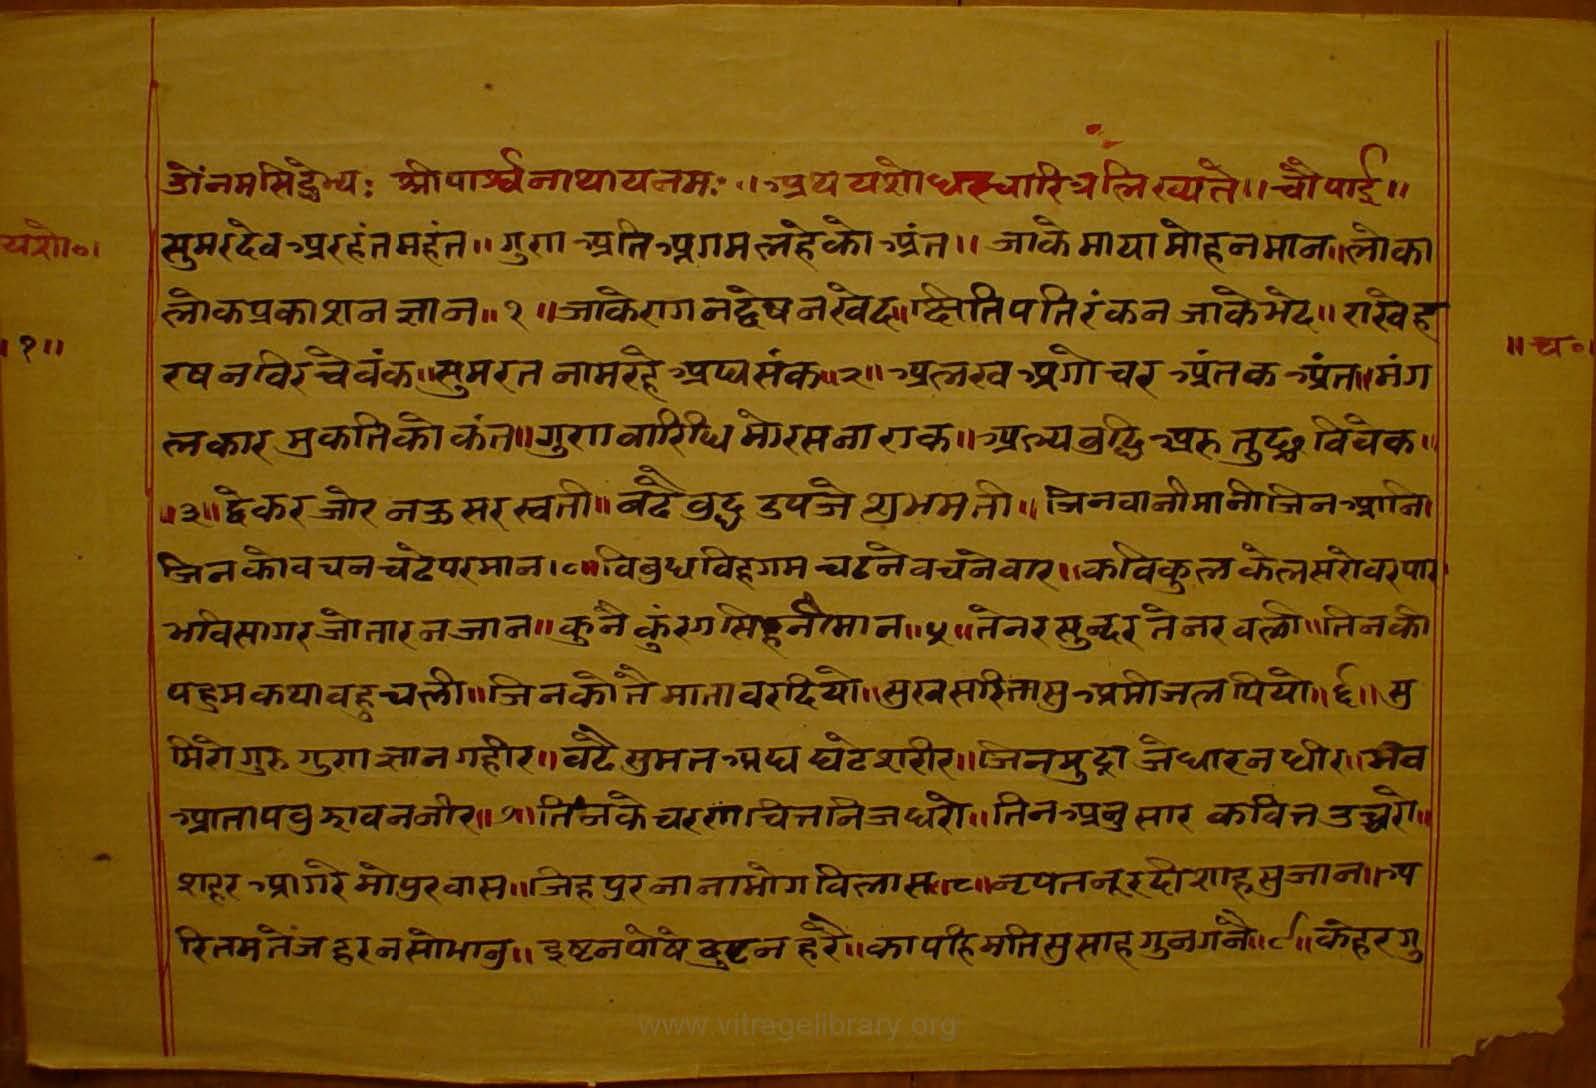 ॐ नमसिद्धेभ्यः श्रीपार्श्वनाथाय नमः ॥ अथ यशोधरचारित्र लिख्यते ॥ चौपाई ॥
यशो॰।
सुमरदेव अरहंत महंत ॥ गुण अति अगम लहे को अंत ॥ जाके माया मोह न मान ॥ लोका
लोक प्रकाशन ज्ञान ॥ १ ॥ जाके राग न द्वेष न खेद ॥ क्षितिपति रंक न जाके भेद ॥ राखे ह
।१॥
॥च॰।
रष न विरचे वंक ॥ सुमरत नाम रहे अघ संक ॥ २ ॥ अलख अगोचर अंतक अंत ॥ मंग
लकार मुकति को कंत ॥ गुण वारिधि मो रसना एक ॥ अल्य बुद्धि अरु तुछ विवेक ॥
॥ ३ ॥ द्वेकर जोर नऊ सरस्वती ॥ बढै बुद्ध उपजे शुभमती ॥ जिनवानी मानी जिन आनि
जिनको वचन चढे परमान । ८ ॥ विबुध विहगम चढने वचनेवार ॥ कविकुल केल सरोवर पार
भविसागर जो तारन जान ॥ कुनै कुंरग सिह नै मान ॥ ५ ॥ ते नर सुन्दर ते नर वली ॥ तिनको
पहुम कथा वहु चली ॥ जिनको तै माता वर दियो ॥ सुख सरिता सु अमी जल पियो ॥ ६ ॥ सु
मिरो गुरु गुण ज्ञान गहीर ॥ वढै सुमत अघ घटे शरीर ॥ जिनमुद्रा जे धारन धीर ॥ भव
आताप वुझावन नीर ॥ ७ ॥ तिनके चरण चित्त निज धरो ॥ तिन अनुसार कवित्त उच्चरो ॥
शहर आगरे मो पुर वास ॥ जिह पुर नाना भोग विलास ॥ ८ ॥ नृपत नूरदी शाह सुजान ॥ अ
रि तम तेज हरन सो भानु ॥ इष्टन पोषे दुष्टन हरै ॥ का पहि मति सु साह गुन गनै ॥ ९ ॥ केहर गु
www.vitragelibrary.org